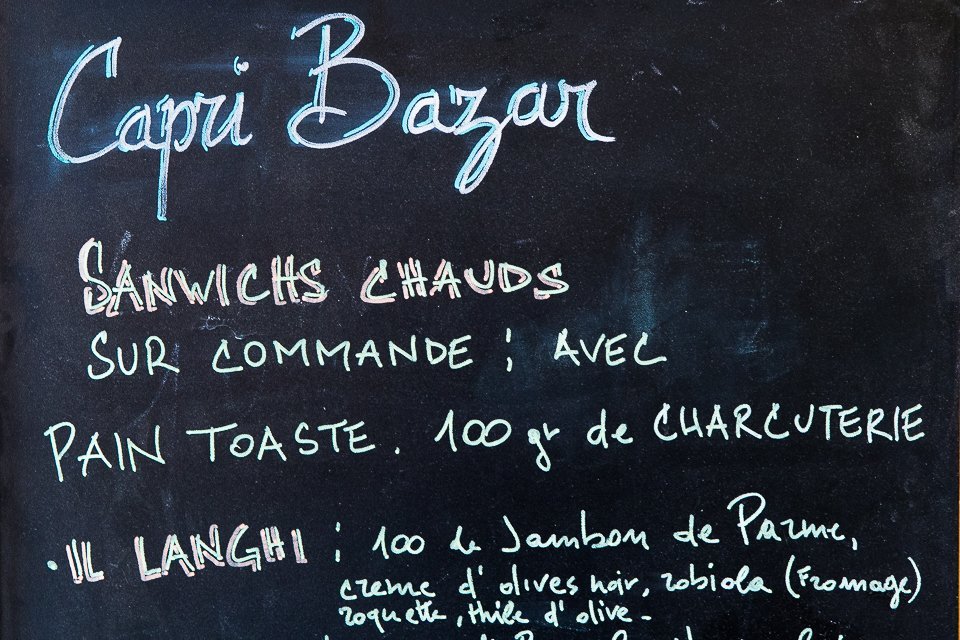 Capri Bazar
SANWICHS CHAUDS
SUR COMMANDE ; AVEC
PAIN TOASTE. 100 gr de CHARCUTERIE
• IL LANGHI : 100 de Jambon de Parme,
creme d'olives noir, robiola (Fromage)
roquette, thile d'olive.